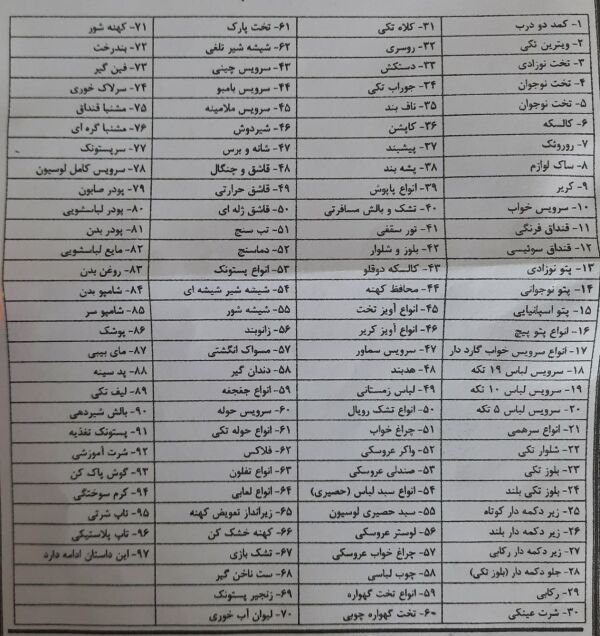 ۱- کمد دو درب
۲- ویترین تکی
۳- تخت نوزادی
۴- تخت نوجوان
۵- تخت نوجوان
۶- کالسکه
۷- روروئک
۸- ساک لوازم
۹- کریر
۱۰- سرویس خواب
۱۱- قنداق فرنگی
۱۲- قنداق سوئیسی
۱۳- پتو نوزادی
۱۴- پتو نوجوانی
۱۵- پتو اسپانیایی
۱۶- انواع پتو پیچ
۱۷- انواع سرویس خواب گارد دار
۱۸- سرویس لباس ۱۹ تکه
۱۹- سرویس لباس ۱۰ تکه
۲۰- سرویس لباس ۵ تکه
۲۱- انواع سرهمی
۲۲- شلوار تکی
۲۳- بلوز تکی
۲۴- بلوز تکی بلند
۲۵- زیر دکمه دار کوتاه
۲۶- زیر دکمه دار بلند
۲۷- زیر دکمه دار رکابی
۲۸- جلو دکمه دار (بلوز تکی)
۲۹- رکابی
۳۰- شرت عینکی
۳۱- کلاه تکی
۳۲- روسری
۳۳- دستکش
۳۴- جوراب تکی
۳۵- ناف بند
۳۶- کاپشن
۳۷- پیشبند
۳۸- پشه بند
۳۹- انواع پاپوش
۴۰- تشک و بالش مسافرتی
۴۱- تور سقفی
۴۲- بلوز و شلوار
۴۳- کالسکه دوقلو
۴۴- محافظ کهنه
۴۵- انواع آویز تخت
۴۶- انواع آویز کریر
۴۷- سرویس سماور
۴۸- هدبند
۴۹- لباس زمستانی
۵۰- انواع تشک رویال
۵۱- چراغ خواب
۵۲- واکر عروسکی
۵۳- صندلی عروسکی
۵۴- انواع سبد لباس (حصیری)
۵۵- سبد حصیری لوسیون
۵۶- لوستر عروسکی
۵۷- چراغ خواب عروسکی
۵۸- چوب لباسی
۵۹- انواع تخت گهواره
۶۰- تخت گهواره چوبی
۶۱- تخت پارک
۶۲- شیشه شیر تلفی
۴۳- سرویس چینی
۴۴- سرویس بامبو
۴۵- سرویس ملامینه
۴۶- شیردوش
۴۷- شانه و برس
۴۸- قاشق و چنگال
۴۹- قاشق حرارتی
۵۰- قاشق ژله ای
۵۱- تب سنج
۵۲- دماسنج
۵۳- انواع پستونک
۵۴- شیشه شیر شیشه ای
۵۵- شیشه شور
۵۶- زانوبند
۵۷- مسواک انگشتی
۵۸- دندان گیر
۵۹- انواع جغجغه
۶۰- سرویس حوله
۶۱- انواع حوله تکی
۶۲- فلاکس
۶۳- انواع تفلون
۶۴- انواع لعابی
۶۵- زیرانداز تعویض کهنه
۶۶- کهنه خشک کن
۶۷- تشک بازی
۶۸- ست ناخن گیر
۶۹- زنجیر پستونک
۷۰- لیوان آب خوری
۷۱- کهنه شور
۷۲- بندرخت
۷۳- فین گیر
۷۴- سرلاک خوری
۷۵- مشنبا قنداقی
۷۶- مشنبا گره ای
۷۷- سرپستونک
۷۸- سرویس کامل لوسیون
۷۹- پودر صابون
۸۰- پودر لباسشویی
۸۱- پودر بدن
۸۲- مایع لباسشویی
۸۳- روغن بدن
۸۴- شامپو بدن
۸۵- شامپو سر
۸۶- پوشک
۸۷- مای بیبی
۸۸- پد سینه
۸۹- لیف تکی
۹۰- بالش شیردهی
۹۱- پستونک تغذیه
۹۲- شرت آموزشی
۹۳- گوش پاک کن
۹۴- کرم سوختگی
۹۵- تاپ شرتی
۹۶- تاپ پلاستیکی
۹۷- این داستان ادامه دارد